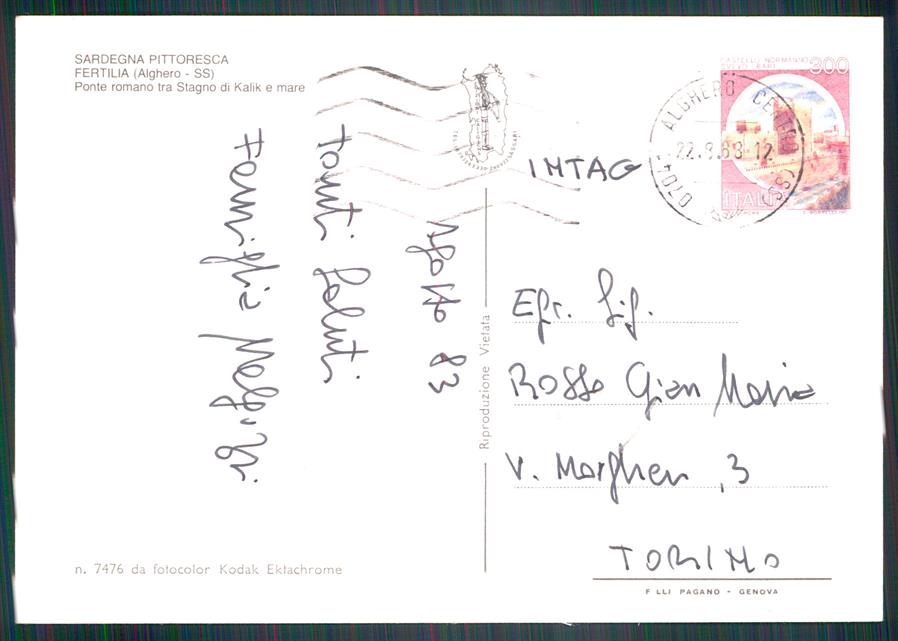 SARDEGNA PITTORESCA
FERTILIA (Alghero - SS)
Ponte romano tra Stagno di Kalik e mare
Agosto 83
Tanti Saluti
Famiglia
CASTELLO NORMANNO
SVEVO - BARI
300
ITALIA
ALGHERO CENTRO
22.8.83-12
(SS)
INTAG
Egr. Sig.
Rosso Gian Maria
V. Morghen, 3
TORINO
Riproduzione Vietata
n. 7476 da fotocolor Kodak Ektachrome
F.LLI PAGANO - GENOVA